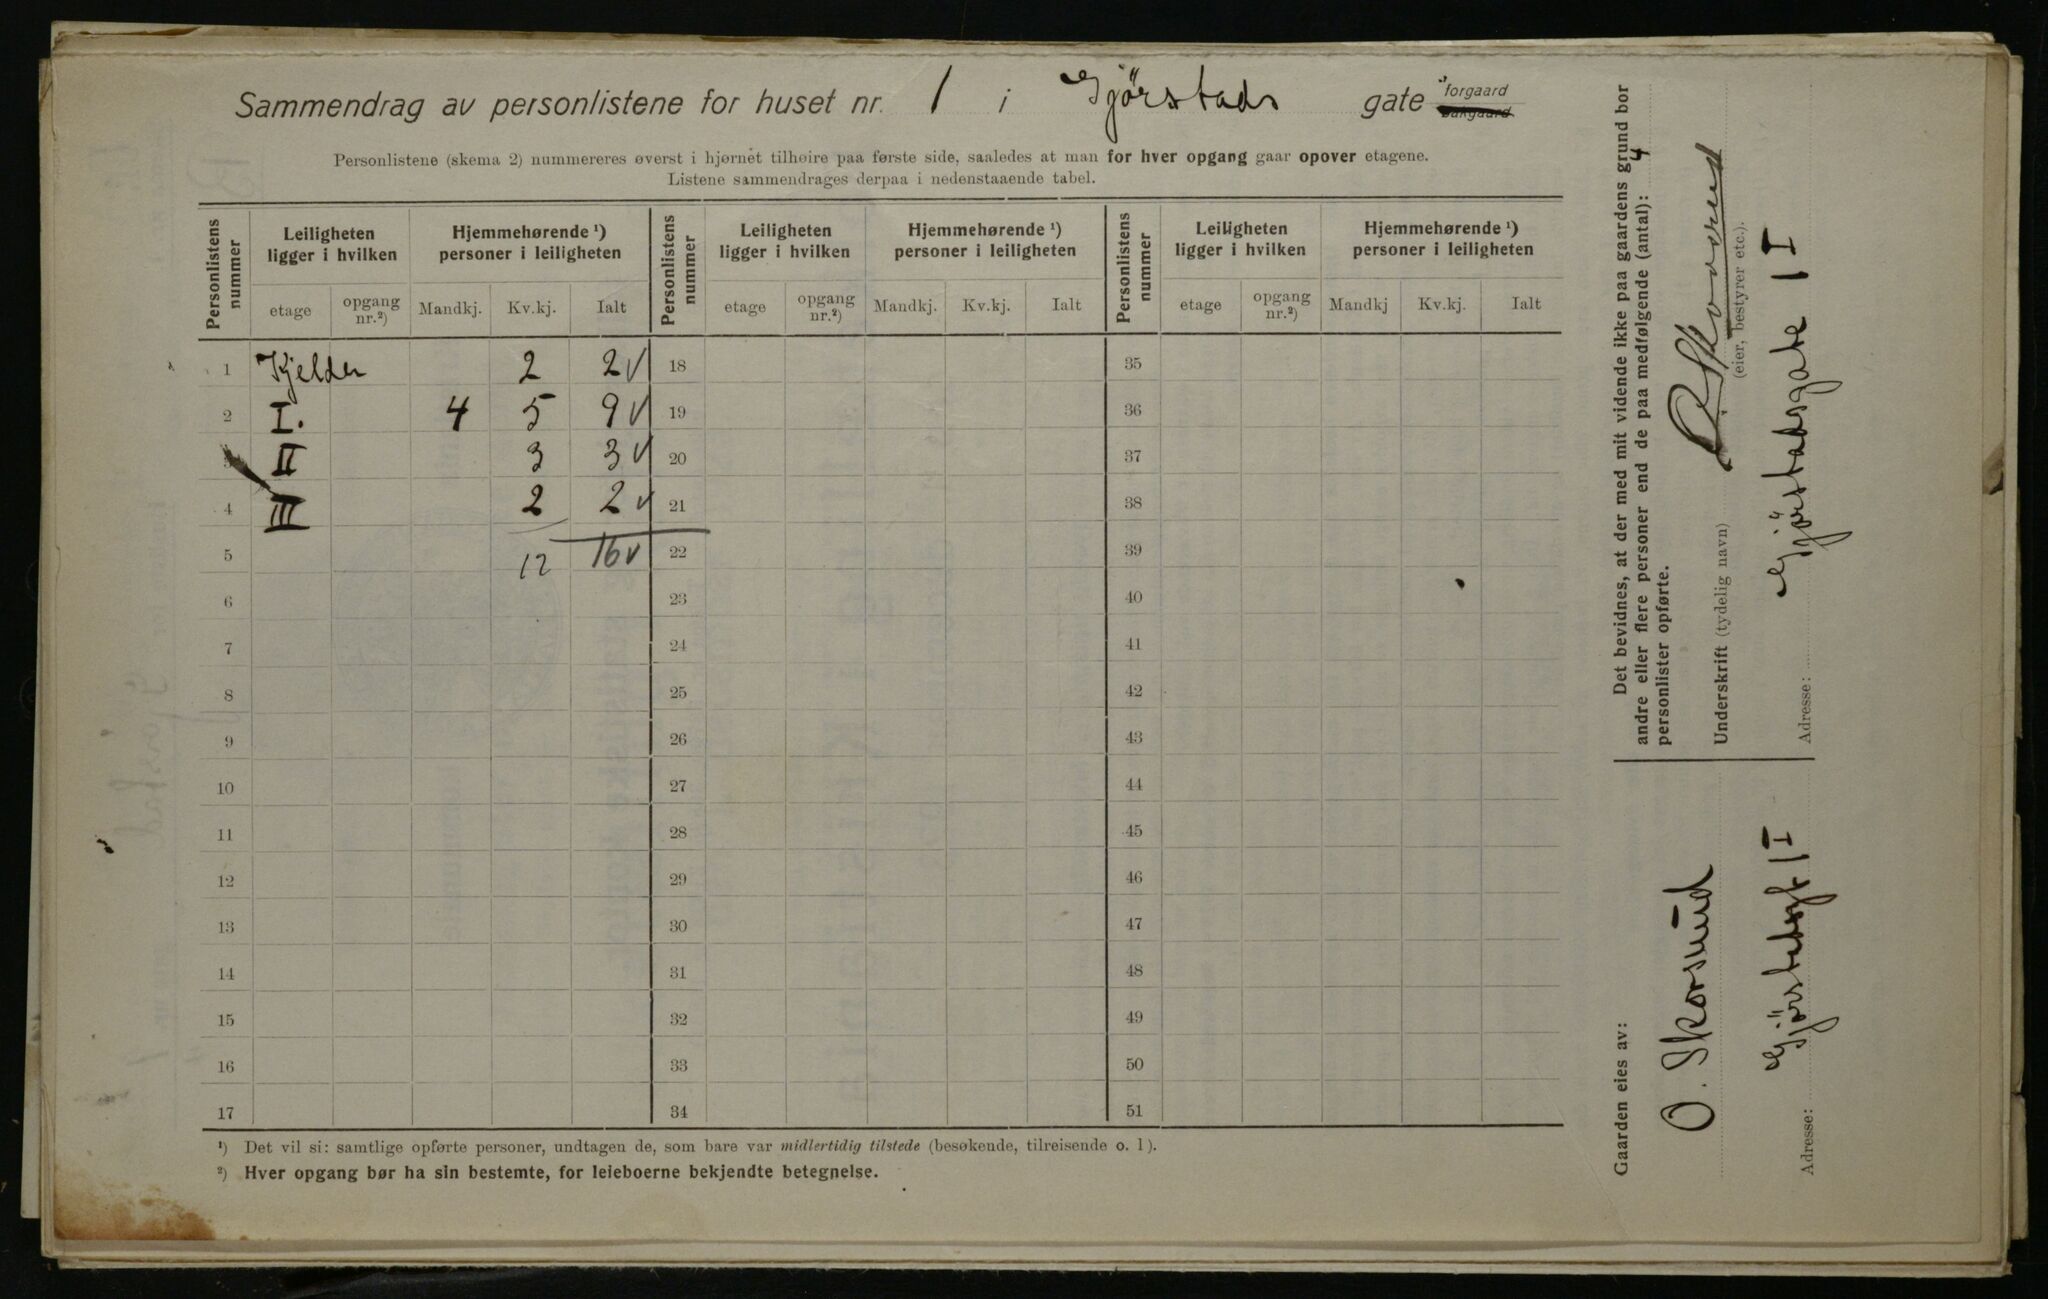 Sammendrag av personlistene for huset nr. 1 i Gjørstads gate forgaard
bakgaard
Personlistene (skema 2) nummereres øverst i hjørnet tilhøire paa første side, saaledes at man for hver opgang gaar opover etagene.
Listene sammendrages derpaa i nedenstaaende tabel.
Personlistens nummer | Leiligheten ligger i hvilken | Hjemmehørende ¹) personer i leiligheten | Personlistens nummer | Leiligheten ligger i hvilken | Hjemmehørende ¹) personer i leiligheten | Personlistens nummer | Leiligheten ligger i hvilken | Hjemmehørende ¹) personer i leiligheten
etage | opgang nr.²) | Mandkj. | Kv.kj. | Ialt | etage | opgang nr.²) | Mandkj. | Kv.kj. | Ialt | etage | opgang nr.²) | Mandkj | Kv.kj. | Ialt
1 Kjelder 2 2 v 18 35
2 I. 4 5 9 v 19 36
3 II 3 3 v 20 37
4 III 2 2 v 21 38
5 12 16 v 22 39
6 23 40
7 24 41
8 25 42
9 26 43
10 27 44
11 28 45
12 29 46
13 30 47
14 31 48
15 32 49
16 33 50
17 34 51
¹) Det vil si: samtlige opførte personer, undtagen de, som bare var midlertidig tilstede (besøkende, tilreisende o. l).
²) Hver opgang bør ha sin bestemte, for leieboerne bekjendte betegnelse.
Det bevidnes, at der med mit vidende ikke paa gaardens grund bor
andre eller flere personer end de paa medfølgende (antal): 4
personlister opførte.
Underskrift (tydelig navn)
(eier, bestyrer etc.).
Adresse: Gjörstadsgate 1 I
Gaarden eies av:
O. Skorsund
Adresse: Gjörstadsgt 1 I